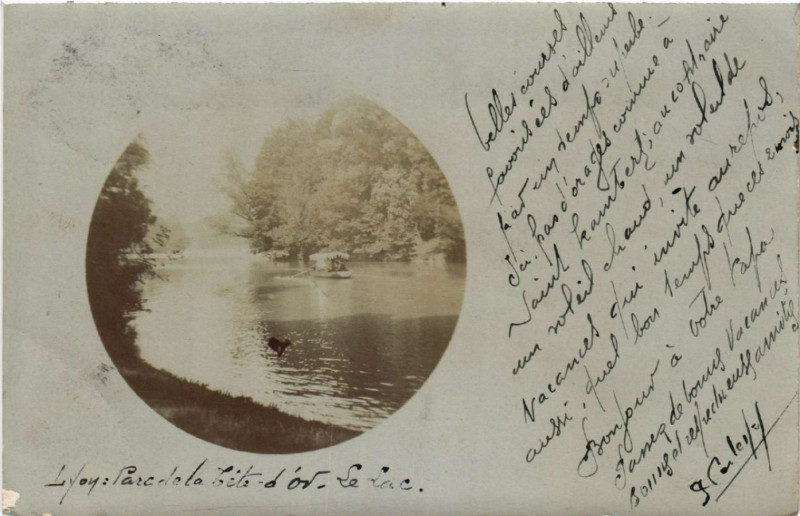 belles courses
favorisées d'ailleurs
par un temps superbe.
Ici pas d'orages comme à
Saint Rambert, au contraire
un soleil chaud, un soleil de
vacances qui invite au repos,
aussi, quel bon temps que ces 2 mois
Bonjour à votre Papa
Passez de bonnes vacances
bonne et respectueuse amitié
Lyon: Parc de la Tête-d'or. Le Lac.